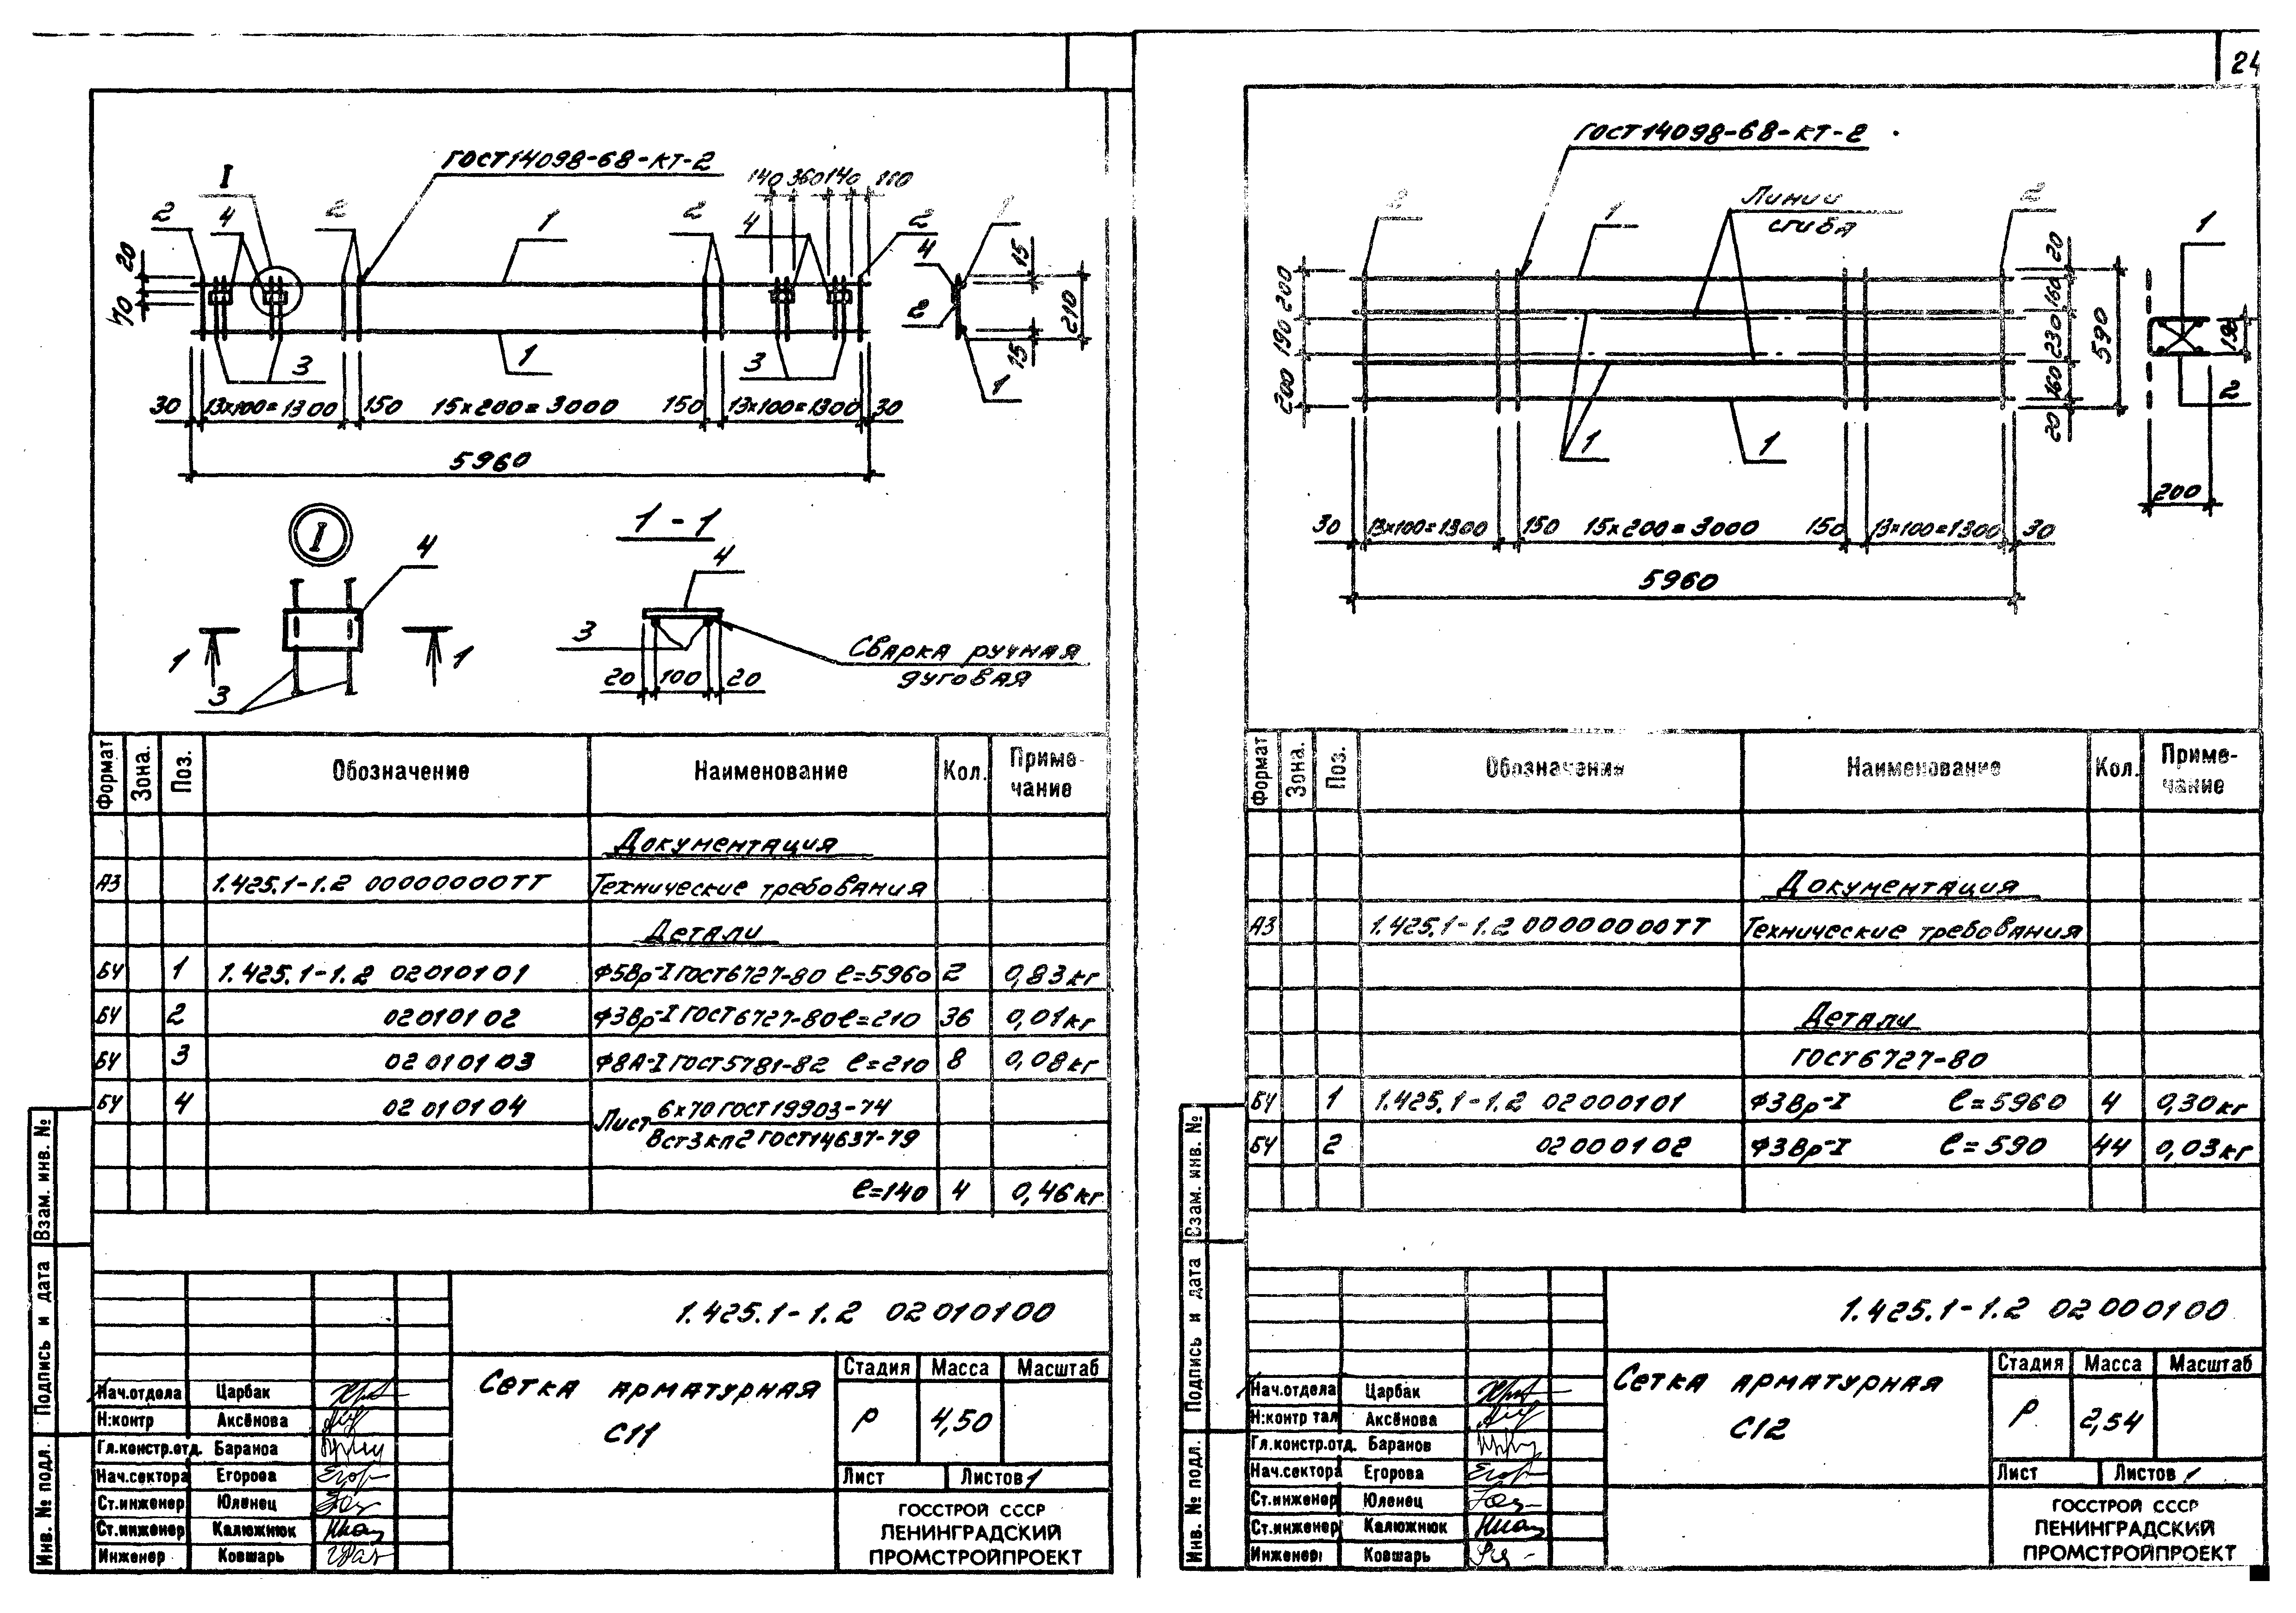 24
ГОСТ14098-68-КТ-2
I
140 360 140
2 4 2 1 2 4 2 1
20
70
4
15
2
210
15
1
3 1 3
30 13×100=1300 150 15×200=3000 150 13×100=1300 30
5960
I
4
1 1
3
1-1
4
3
20 100 20
Сварка ручная
дуговая
Формат Зона. Поз. Обозначение Наименование Кол. Приме-
чание
Документация
А3 1.425.1-1.2 00000000ТТ Технические требования
Детали
БЧ 1 1.425.1-1.2 02010101 Ф5Вр-I ГОСТ6727-80 ℓ=5960 2 0,83кг
БЧ 2 02010102 Ф3Вр-I ГОСТ6727-80 ℓ=210 36 0,01кг
БЧ 3 02010103 Ф8А-I ГОСТ5781-82 ℓ=210 8 0,08кг
БЧ 4 02010104 Лист 6×70 ГОСТ19903-74
Вст3кп2 ГОСТ14637-79
ℓ=140 4 0,46кг
1.425.1-1.2 02010100
Сетка арматурная
С11
Стадия Масса Масштаб
Р 4,50
Лист Листов 1
ГОССТРОЙ СССР
ЛЕНИНГРАДСКИЙ
ПРОМСТРОЙПРОЕКТ
Нач.отдела Царбак
Н:контр Аксёнова
Гл.констр.отд. Бараноа
Нач.сектора Егорова
Ст.инженер Юленец
Ст.инженер Калюжнюк
Инженер Ковшарь
Инв. № подл. Подпись и дата Взам. инв. №
ГОСТ14098-68-КТ-2
Линии
сгиба
2 1 2
200
190
200
20
160
230
160
20
590
1
190
2
200
1 1
30 13×100=1300 150 15×200=3000 150 13×100=1300 30
5960
Формат Зона. Поз. Обозначение Наименование Кол. Приме-
чание
Документация
А3 1.425.1-1.2 00000000ТТ Технические требования
Детали
ГОСТ6727-80
БЧ 1 1.425.1-1.2 02000101 Ф3Вр-I ℓ=5960 4 0,30кг
БЧ 2 02000102 Ф3Вр-I ℓ=590 44 0,03кг
1.425.1-1.2 02000100
Сетка арматурная
С12
Стадия Масса Масштаб
Р 2,54
Лист Листов 1
ГОССТРОЙ СССР
ЛЕНИНГРАДСКИЙ
ПРОМСТРОЙПРОЕКТ
Нач.отдела Царбак
Н:контр тал Аксёнова
Гл.констр.отд. Баранов
Нач.сектора Егорова
Ст.инженер Юленец
Ст.инженер Калюжнюк
Инженер Ковшарь
Инв. № подл. Подпись и дата Взам. инв. №